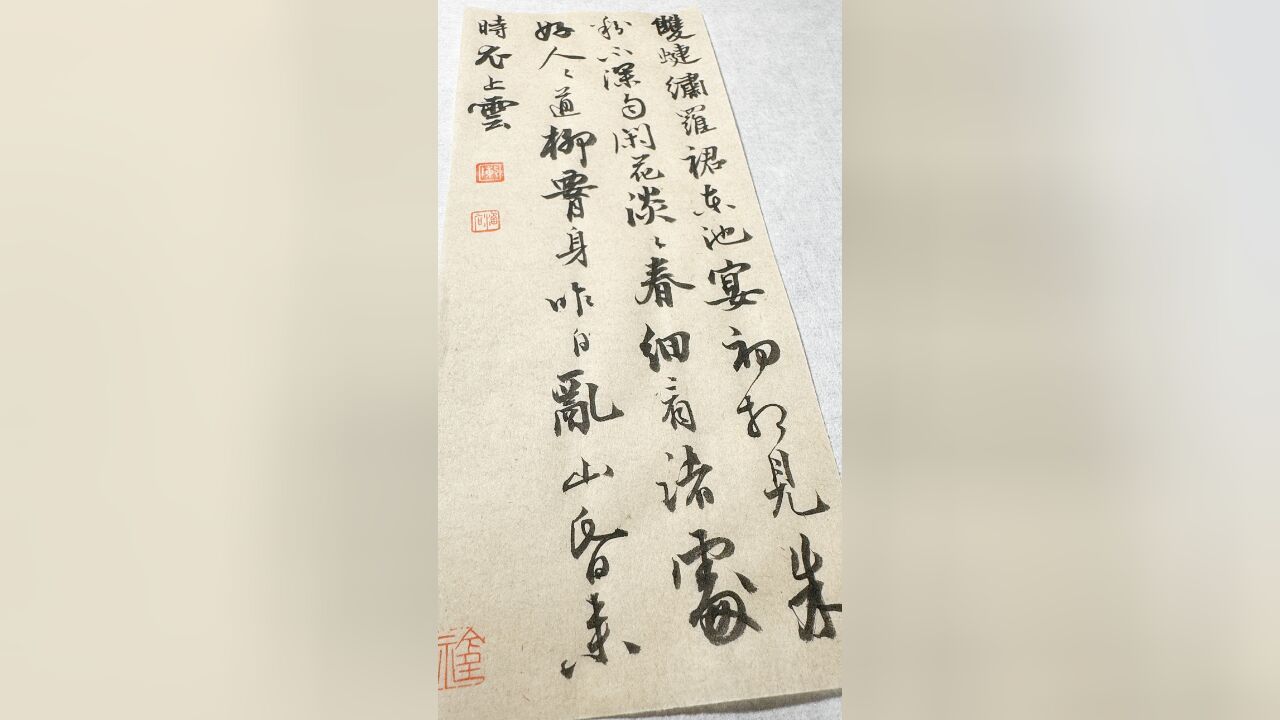 雙蜨繡羅裙東池宴初相見朱
粉不深勻閑花淡〻春細看諸處
好人〻道柳腰身昨日亂山昏來
時衣上雲